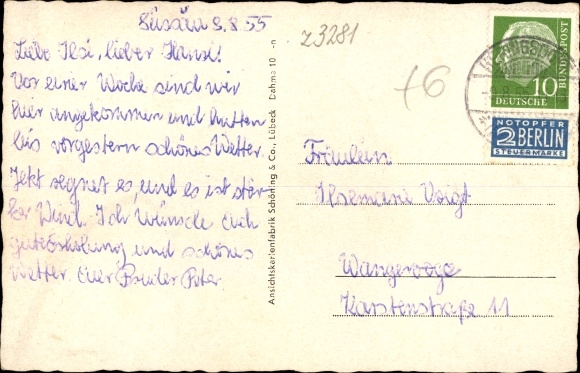 8.8.55
Liebe Ilse, lieber Hansi!
Vor einer Woche sind wir
hier angekommen und hatten
bis vorgestern schönes Wetter.
Jetzt regnet es, und es ist star-
ker Wind. Ich wünsche Euch
gute Erholung und schönes
Wetter. Euer Bruder Peter.
Z3281
+6
Ansichtskartenfabrik Schöning & Co., Lübeck Dahma 10
10
DEUTSCHE
BUNDESPOST
NOTOPFER
2 BERLIN
STEUERMARKE
Fräulein
Ilsemarie Voigt
Wangerooge
Karstenstraße 11